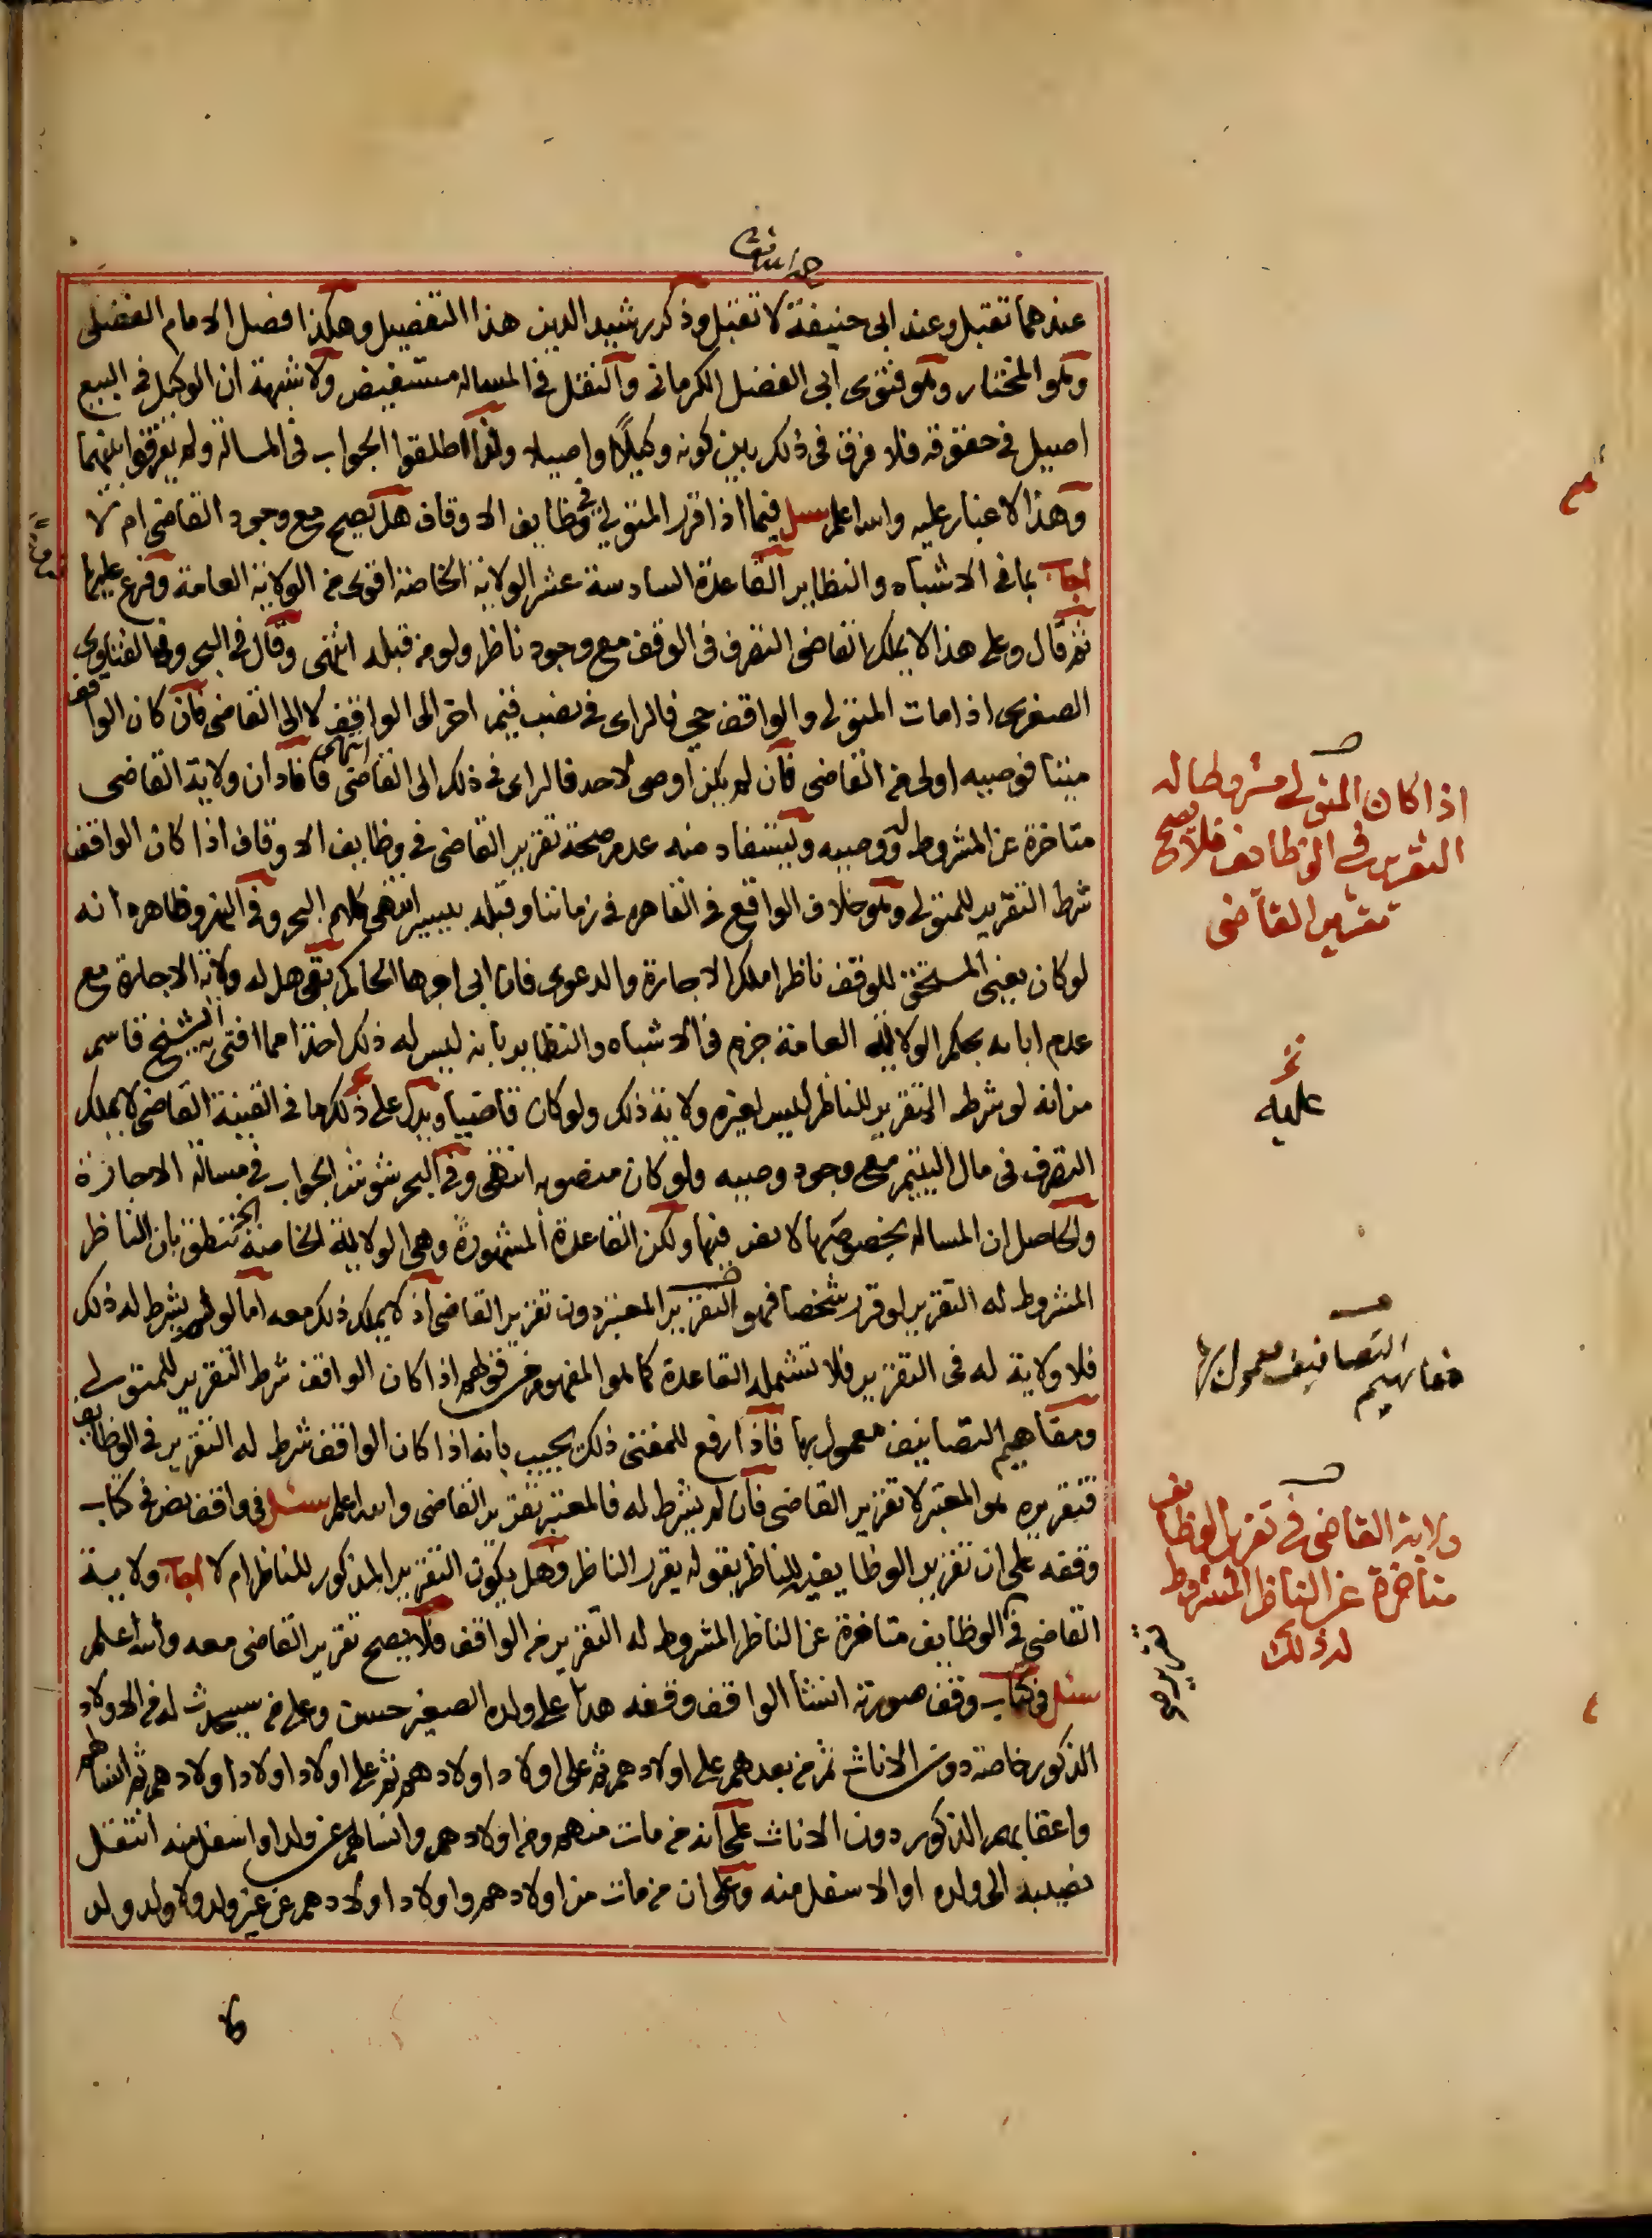 عندهما تقبل وعند ابى حنيفة لا تقبل وذكر رشيد الدين هذا التفصيل وهكذا فصل الامام الفضلى
وهو المختار وهو فتوى ابى الفضل الكرمانى والنقل فى المسالة مستفيض ولا شبهة ان الوكيل فى البيع
اصيل فى حقوقه فلا فرق فى ذلك بين كونه وكيلا واصيلا ولذا اطلقوا الجواب فى المسالة ولم يفرقوا بينهما
وهذا لا غبار عليه والله اعلم سئل فيما اذا قرر المتولى فى وظايف الاوقاف هل يصح مع وجود القاضى ام لا
اجاب بما فى الاشباه والنظاير القاعدة السادسة عشر الولاية الخاصة اقوى من الولاية العامة وفرع عليها
ثم قال وعلى هذا لا يملك القاضى التصرف فى الوقف مع وجود ناظر ولو من قبله انتهى وقال فى البحر وفى الفتاوى
الصغرى اذا مات المتولى والواقف حى فالراى فى نصب قيم اخر الى الواقف لا الى القاضى فان كان الواقف
ميتا فوصيه اولى من القاضى فان لم يكن اوصى لاحد فالراى فى ذلك الى القاضى انتهى فافاد ان ولاية القاضى
متاخرة عن المشروط له ووصيه ويستفاد منه عدم صحة تقرير القاضى فى وظايف الاوقاف اذا كان الواقف
شرط التقرير للمتولى وهو خلاف الواقع فى القاهره فى زماننا وقبله بيسير انتهى كلام البحر وفى النهر وظاهره انه
لو كان يعنى المستحق للوقف ناظرا ملك الاجارة والدعوى فان ابى اجرها الحاكم بقى هل له ولاية الاجارة مع
عدم ابايه بحكم الولاية العامة جزم فى الاشباه والنظاير بانه ليس له ذلك اخذا مما افتى به الشيخ قاسم
من انه لو شرط التقرير للناظر ليس لغيره ولاية ذلك ولو كان قاضيا ويدل على ذلك ما فى القنية القاضى لا يملك
التصرف فى مال اليتيم مع وجود وصيه ولو كان منصوبه انتهى وفى البحر شوش الجواب فى مسالة الاجازة
والحاصل ان المسالة بخصوصها لا نص فيها ولكن القاعدة المشهورة وهى الولاية الخاصة الخ تنطق بان الناظر
المشروط له التقرير لو قرر شخصا فهو التقرير المعتبر دون تقرير القاضى اذ لا يملك ذلك معه اما لو لم يشرط له ذلك
فلا ولاية له فى التقرير فلا تشمله القاعدة كما هو المفهوم من قولهم اذا كان الواقف شرط التقرير للمتولى
ومفاهيم التصانيف معمول بها فاذا رفع للمفتى ذلك يجيب بانه اذا كان الواقف شرط له التقرير فى الوظايف
فتقريره هو المعتبر لا تقرير القاضى فان لم يشرط له فالمعتبر تقرير القاضى والله اعلم سئل فى واقف نص فى كتاب
وقفه على ان تقرير الوظايف للناظر بقوله يقرر الناظر وهل يكون التقرير المذكور للناظر ام لا اجاب ولاية
القاضى فى الوظايف متاخرة عن الناظر المشروط له التقرير من الواقف فلا يصح تقرير القاضى معه والله اعلم
سئل فى كتاب وقف صورته انشا الواقف وقفه هذا على ولده الصغير حسن وعلى من سيحدث له من الاولاد
الذكور خاصة دون الاناث ثم من بعدهم على اولادهم ثم على اولاد اولادهم ثم على اولاد اولاد اولادهم ثم انسالهم
واعقابهم الذكور دون الاناث على انه من مات منهم ومن اولادهم وانسالهم عن ولد او اسفل منه انتقل
نصيبه الى ولده او الاسفل منه وعلى ان من مات من اولادهم واولاد اولادهم عن غير ولد ولا ولد ولد
اذا كان المتولى مشروطا له
التقرير فى الوظايف فلا يصح
تقرير القاضى
عليه
مفاهيم التصانيف معمول بها
ولاية القاضى فى تقرير الوظايف
متاخرة عن الناظر المشروط
له ذلك
تقرير صح